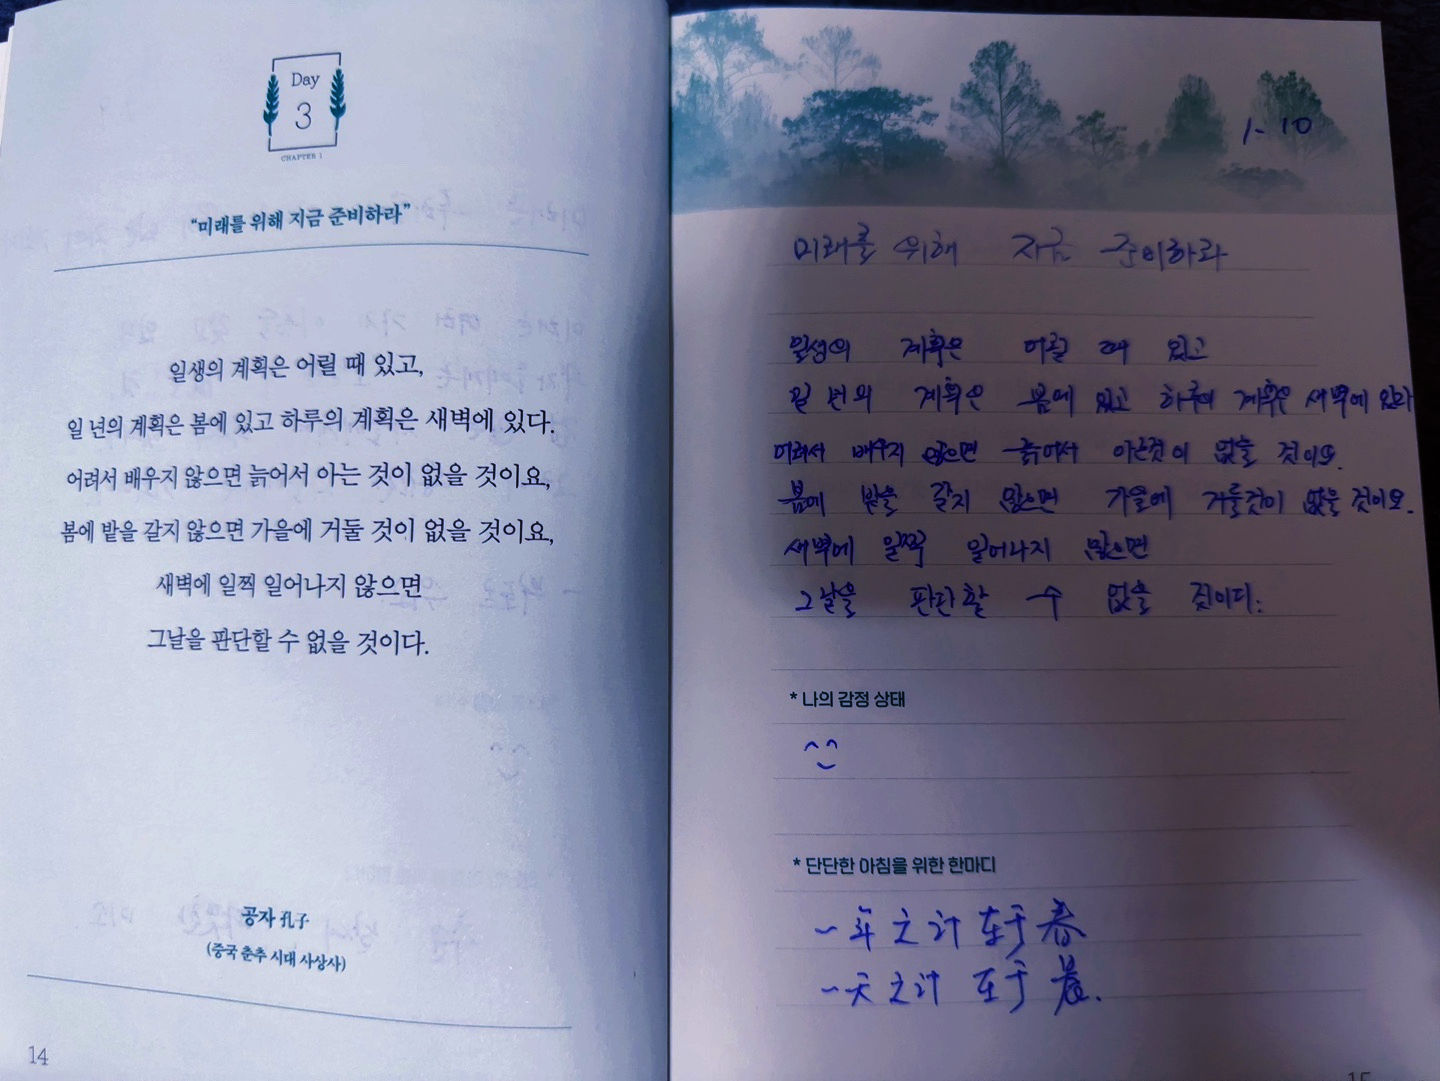 Day
3
CHAPTER 1
“미래를 위해 지금 준비하라”
일생의 계획은 어릴 때 있고,
일 년의 계획은 봄에 있고 하루의 계획은 새벽에 있다.
어려서 배우지 않으면 늙어서 아는 것이 없을 것이요,
봄에 밭을 갈지 않으면 가을에 거둘 것이 없을 것이요,
새벽에 일찍 일어나지 않으면
그날을 판단할 수 없을 것이다.
공자 孔子
(중국 춘추 시대 사상사)
14
1-10
미래를 위해 지금 준비하라
일생의 계획은 어릴 때 있고
일 년의 계획은 봄에 있고 하루의 계획은 새벽에 있다
어려서 배우지 않으면 늙어서 아는것이 없을 것이요.
봄에 밭을 갈지 않으면 가을에 거둘것이 없을 것이요.
새벽에 일찍 일어나지 않으면
그날을 판단할 수 없을 것이다.
* 나의 감정 상태
* 단단한 아침을 위한 한마디
一年之计在于春
一天之计在于晨.
15